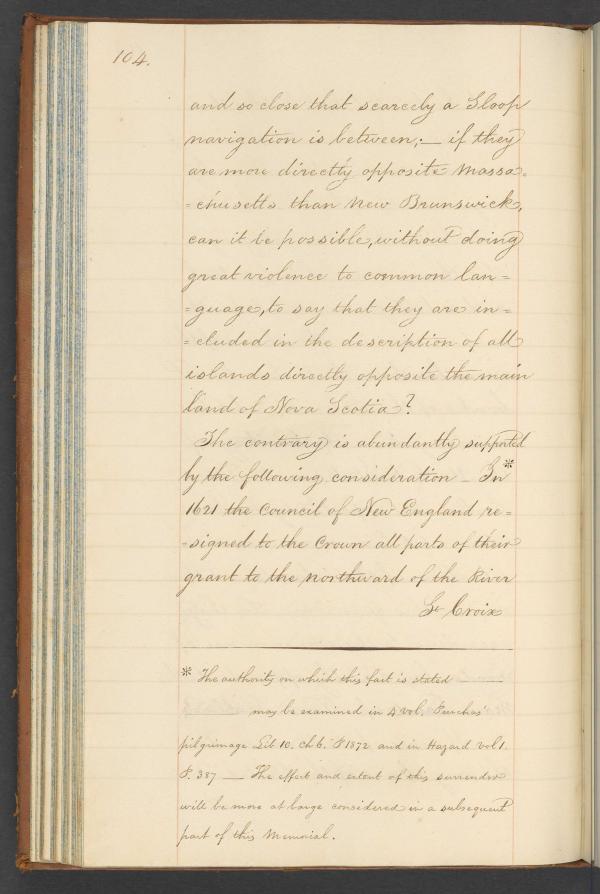 104.
and so close that scarcely a Sloop
navigation is between;— if they
are more directly opposite Massa-
=chusetts than New Brunswick,
can it be possible, without doing
great violence to common lan=
=guage, to say that they are in=
=cluded in the description of all
islands directly opposite the main
land of Nova Scotia?
The contrary is abundantly supported
by the following consideration — In*
1621 the Council of New England re=
=signed to the Crown all parts of their
grant to the northward of the River
St Croix
* The authority on which this fact is stated ——
—— may be examined in 4 vol. Purchas'
pilgrimage Lib 10. ch 6. P 1872 and in Hazard vol 1.
P. 387 — The effect and extent of this surrender
will be more at large considered in a subsequent
part of this Memorial.